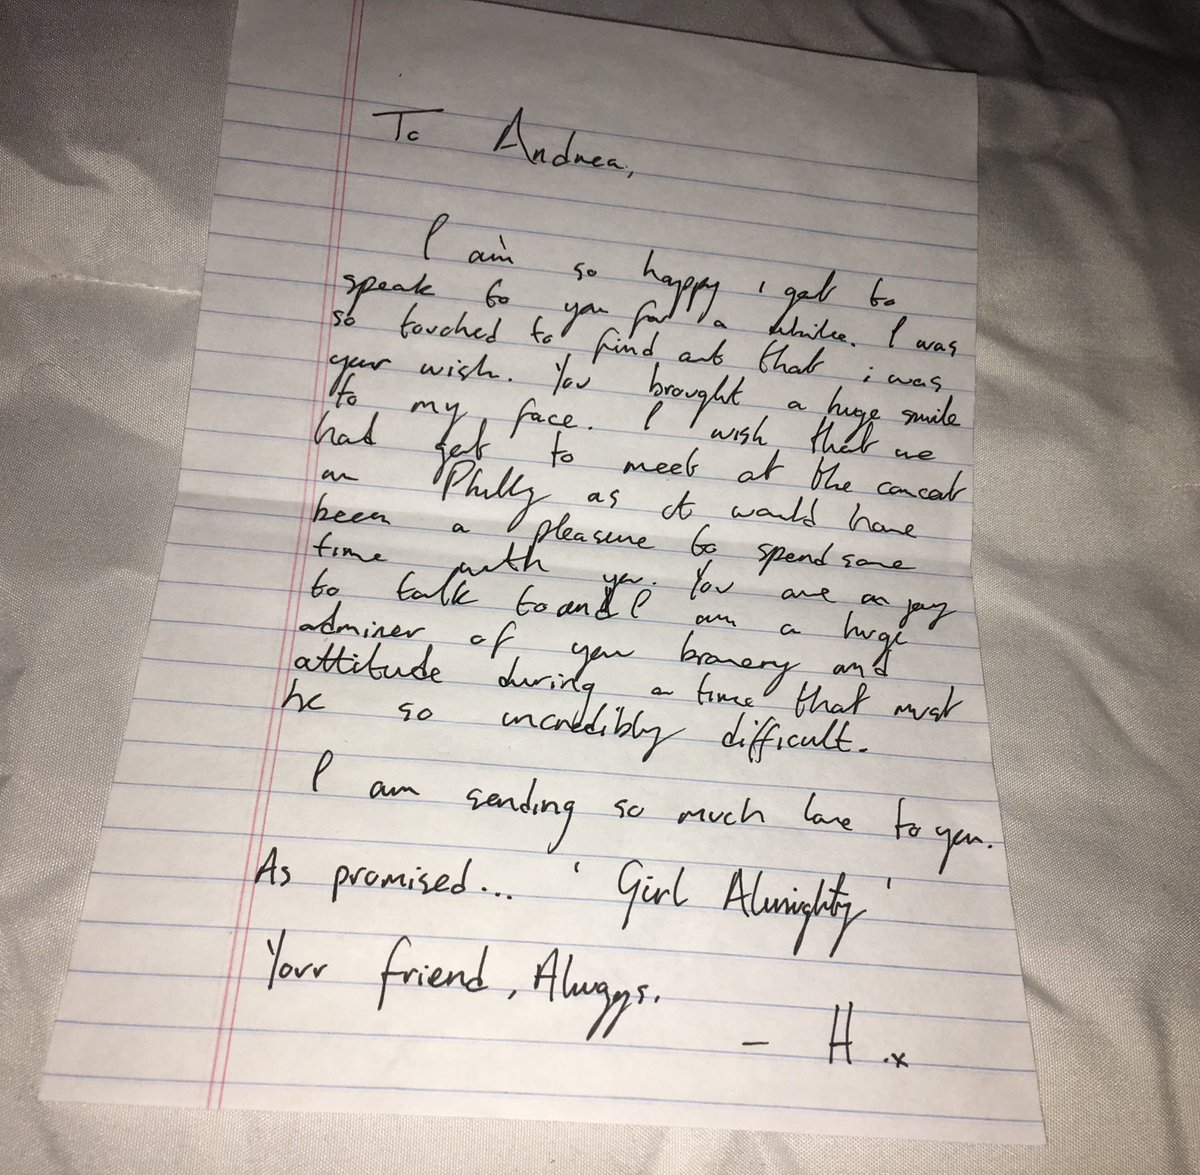 To Andrea,
I am so happy i got to
speak to you for a while. I was
so touched to find out that i was
your wish. You brought a huge smile
to my face. I wish that we
had got to meet at the concert
in Philly as it would have
been a pleasure to spend some
time with you. You are a joy
to talk to and I am a huge
admirer of your bravery and
attitude during a time that must
be so incredibly difficult.
I am sending so much love to you.
As promised... 'Girl Almighty'
Your friend, Always.
- H .x